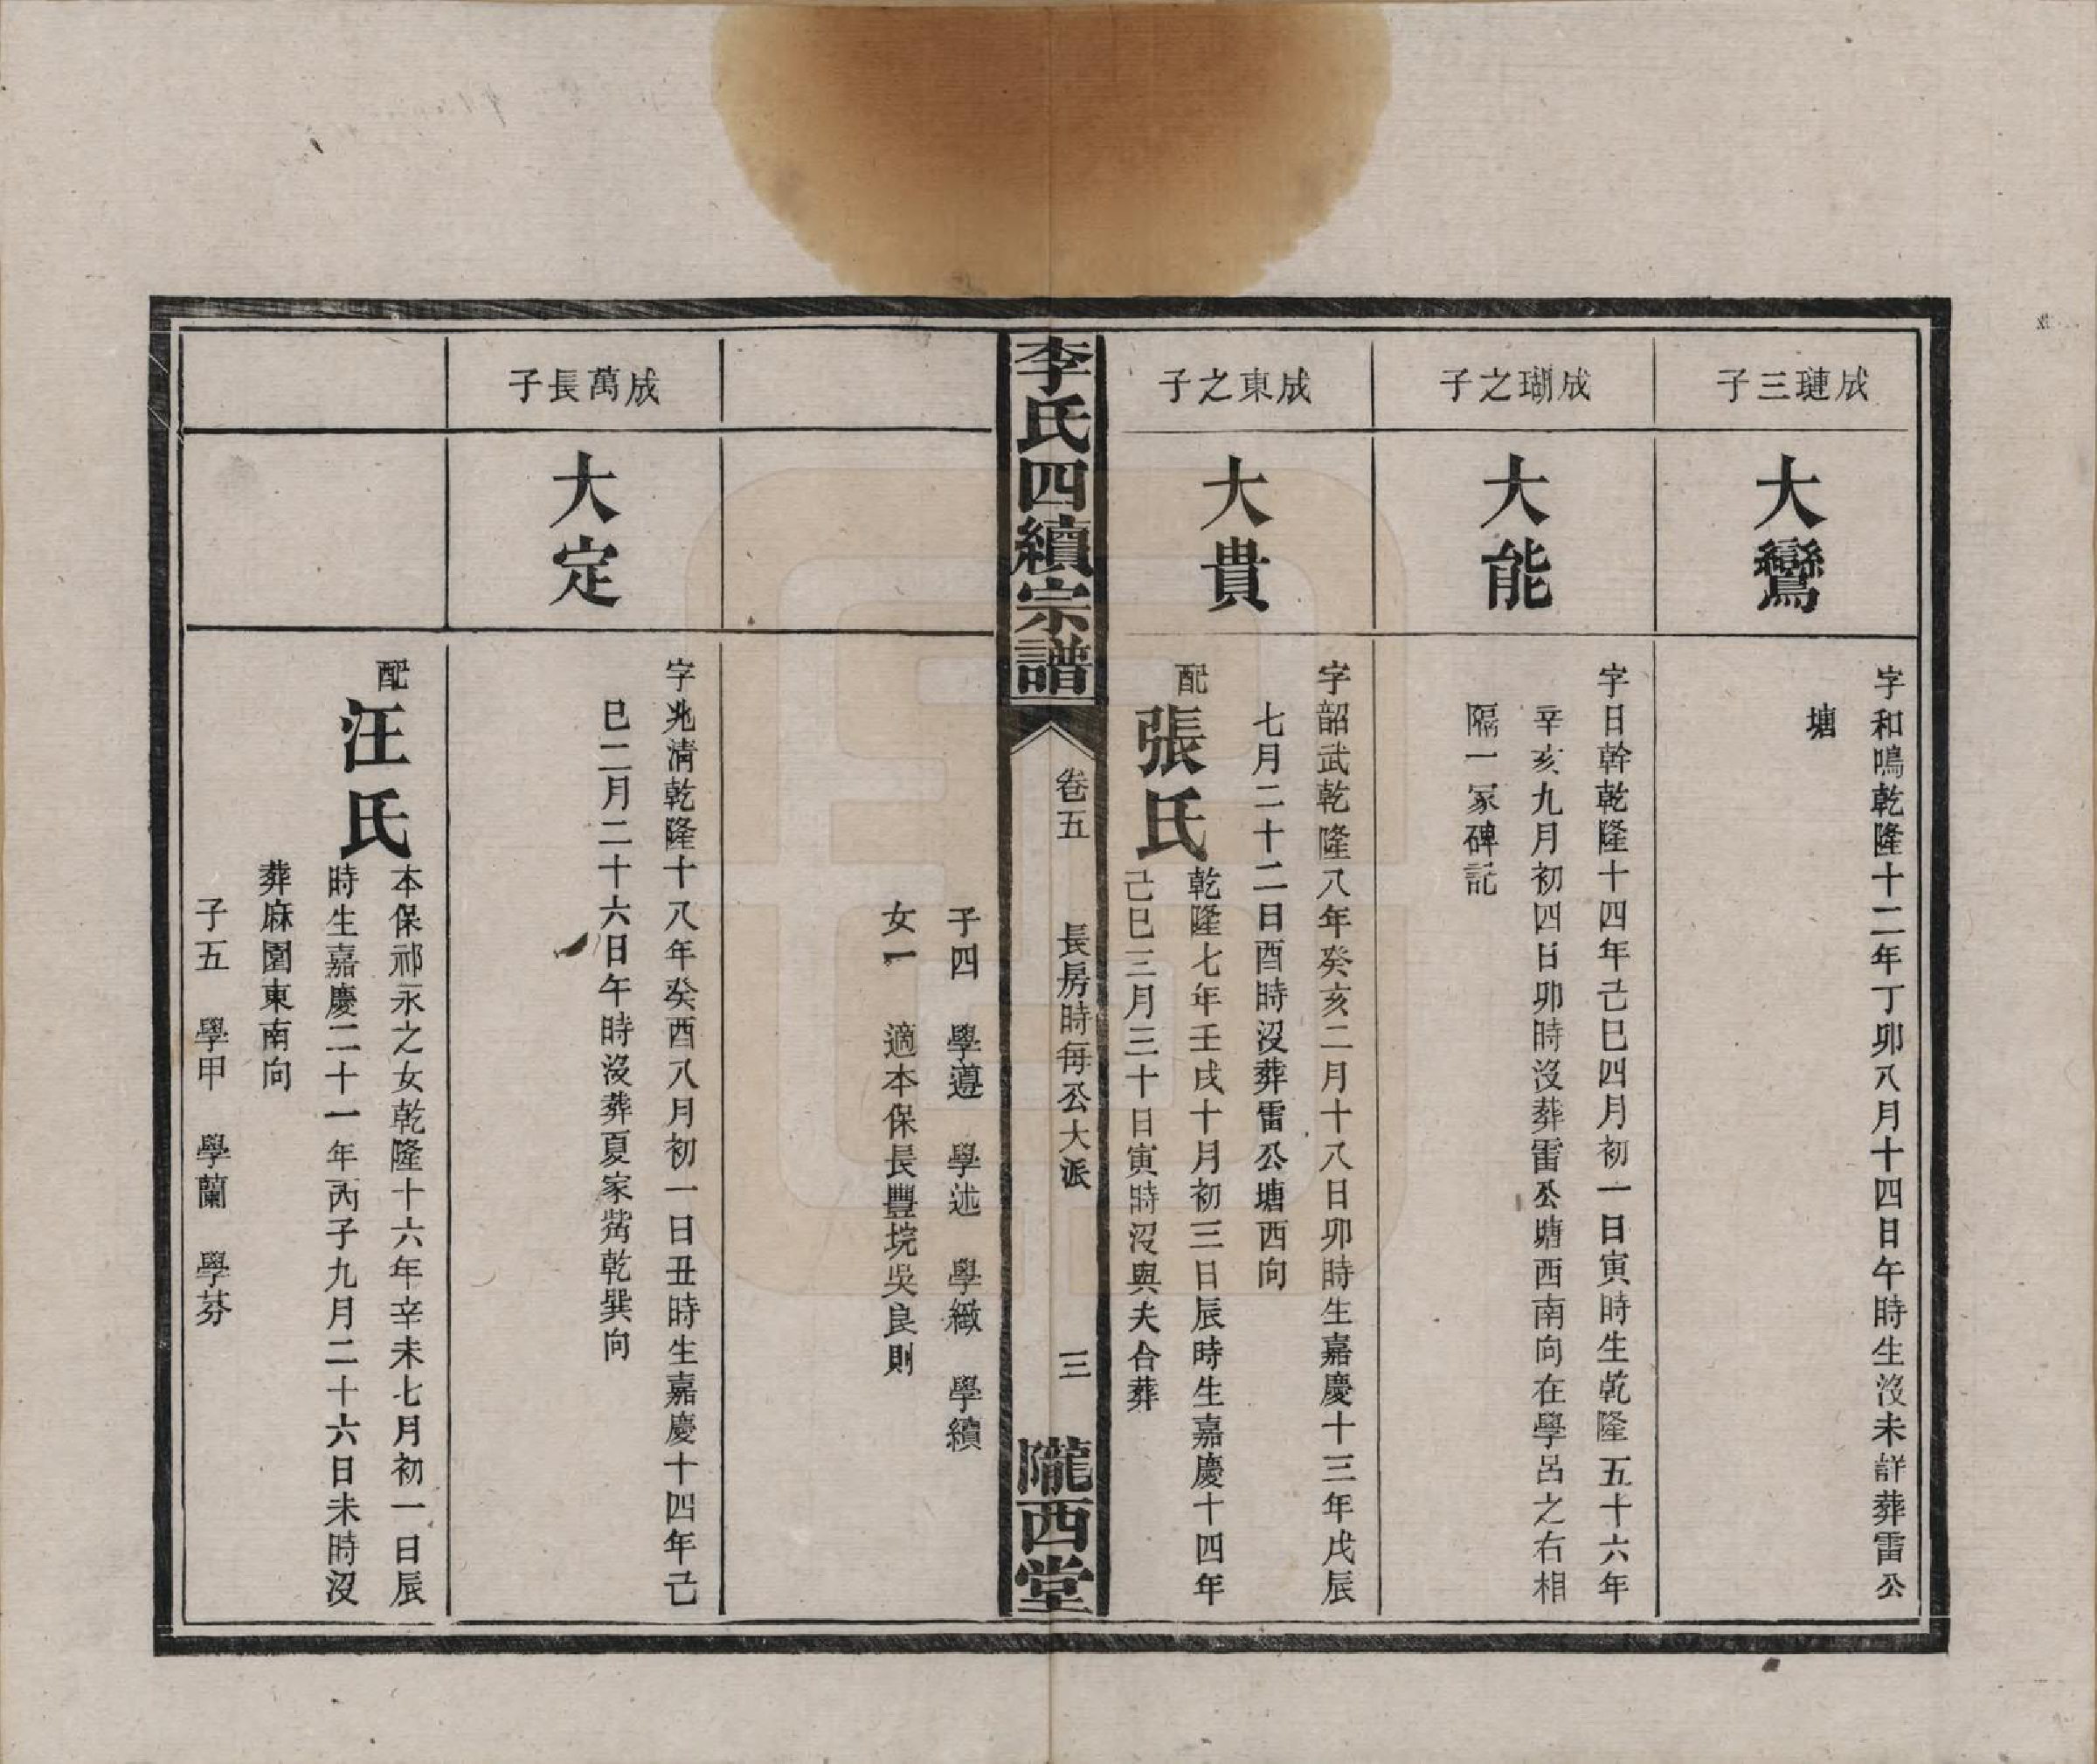 成璉三子
大鸞
字和鳴乾隆十二年丁卯八月十四日午時生沒未詳葬雷公
塘
成瑚之子
大能
字日幹乾隆十四年己巳四月初一日寅時生乾隆五十六年
辛亥九月初四日卯時沒葬雷公塘西南向在學呂之右相
隔一冢碑記
成東之子
大貴
字韶武乾隆八年癸亥二月十八日卯時生嘉慶十三年戊辰
七月二十二日酉時沒葬雷公塘西向
配
張氏
乾隆七年壬戌十月初三日辰時生嘉慶十四年
己巳三月三十日寅時沒與夫合葬
李氏四續宗譜
卷五
長房時每公大派
三
隴西堂
子四 學遵 學述 學緻 學纘
女一 適本保長豐垸吳良則
成萬長子
大定
字兆清乾隆十八年癸酉八月初一日丑時生嘉慶十四年己
巳二月二十六日午時沒葬夏家嘴乾巽向
配
汪氏
本保祁永之女乾隆十六年辛未七月初一日辰
時生嘉慶二十一年丙子九月二十六日未時沒
葬麻園東南向
子五 學甲 學蘭 學芬